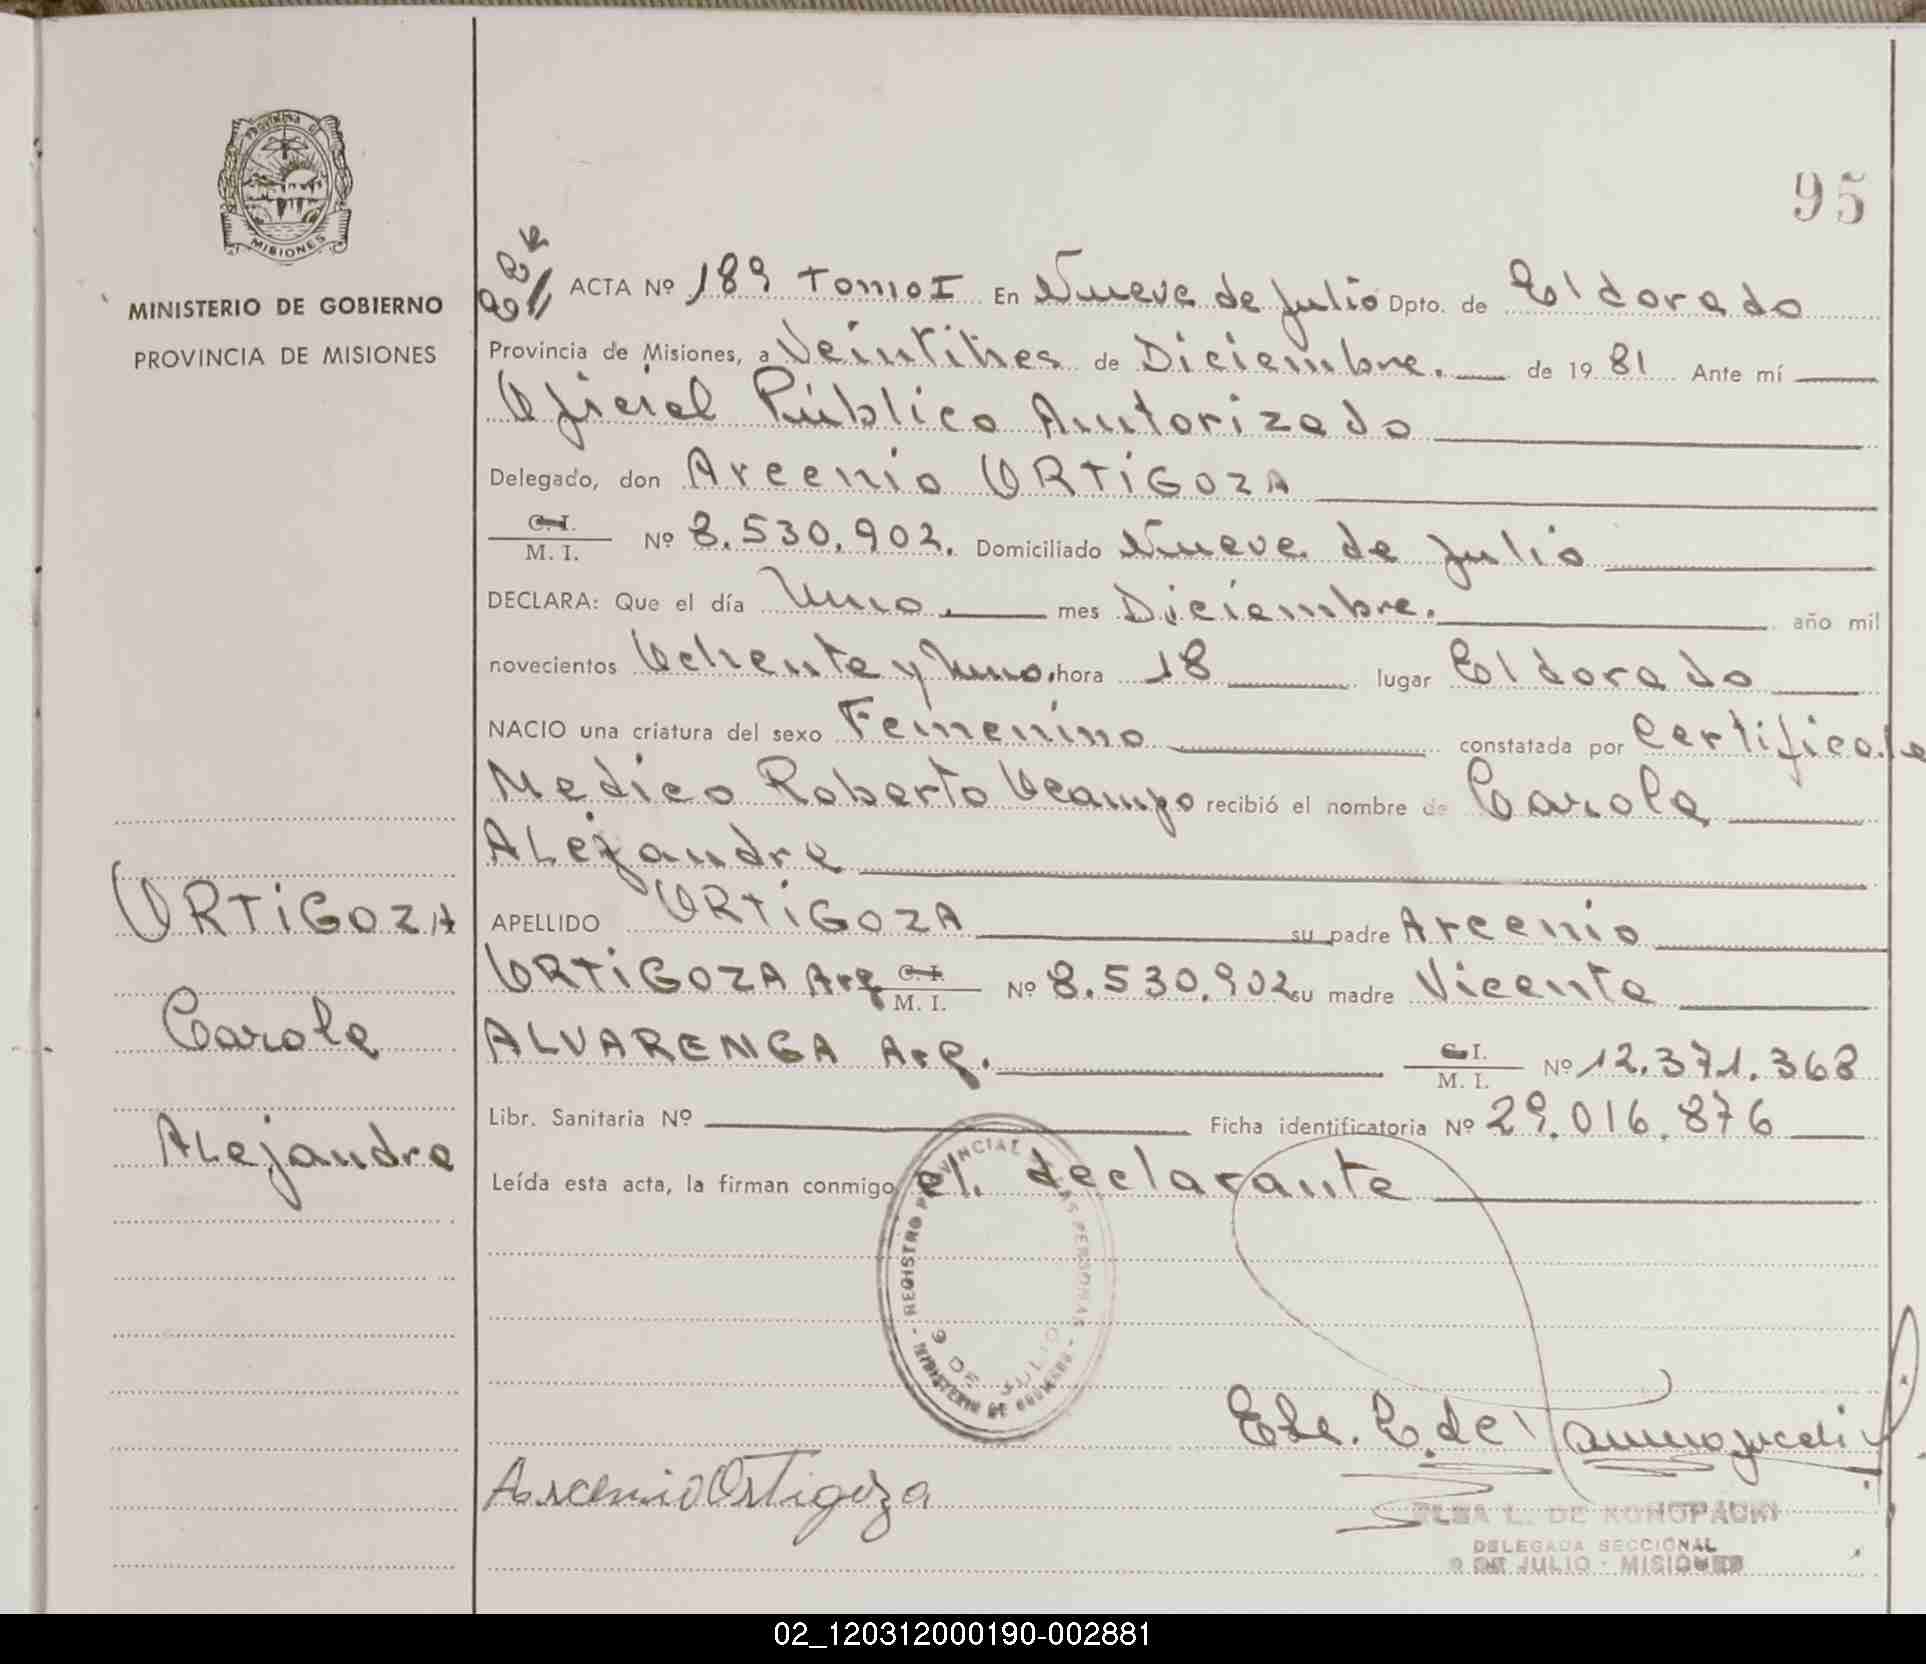 PROVINCIA DE
MISIONES
MINISTERIO DE GOBIERNO
PROVINCIA DE MISIONES
95
ACTA Nº 189 Tomo I En Nueve de Julio Dpto. de Eldorado
Provincia de Misiones, a Veintitres de Diciembre. de 19 81 Ante mí
Oficial Público Autorizado
Delegado, don Arcenio ORTIGOZA
C. I.
M. I. Nº 8.530.902. Domiciliado Nueve de Julio
DECLARA: Que el día Uno. mes Diciembre. año mil
novecientos Ochenta y Uno. hora 18 lugar Eldorado
NACIO una criatura del sexo Femenino constatada por Certificado
Medico Roberto Ocampo recibió el nombre de Carola
ALejandra
APELLIDO ORTIGOZA su padre Arcenio
ORTIGOZA Arg C. I.
M. I. Nº 8.530.902 su madre Vicenta
ALVARENGA Arg. C. I.
M. I. Nº 12.371.368
Libr. Sanitaria Nº Ficha identificatoria Nº 29.016.876
Leída esta acta, la firman conmigo el declarante
ORTIGOZA
Carola
ALejandra
REGISTRO PROVINCIAL DE LAS PERSONAS
9 DE JULIO
MINISTERIO DE GOBIERNO
Arcenio Ortigoza
ELSA L. DE KONOPACKI
DELEGADA SECCIONAL
9 DE JULIO - MISIONES
02_120312000190-002881